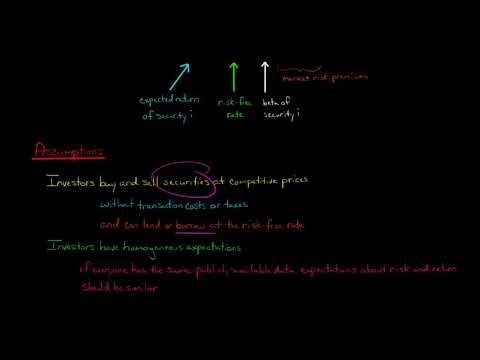 expected return
of security i
risk-free
rate
beta of
security i
market risk premium
Assumptions
Investors buy and sell securities at competitive prices
without transaction costs or taxes
and can lend or borrow at the risk-free rate
Investors have homogenous expectations
if everyone has the same publicly available data, expectations about risk and return
should be similar